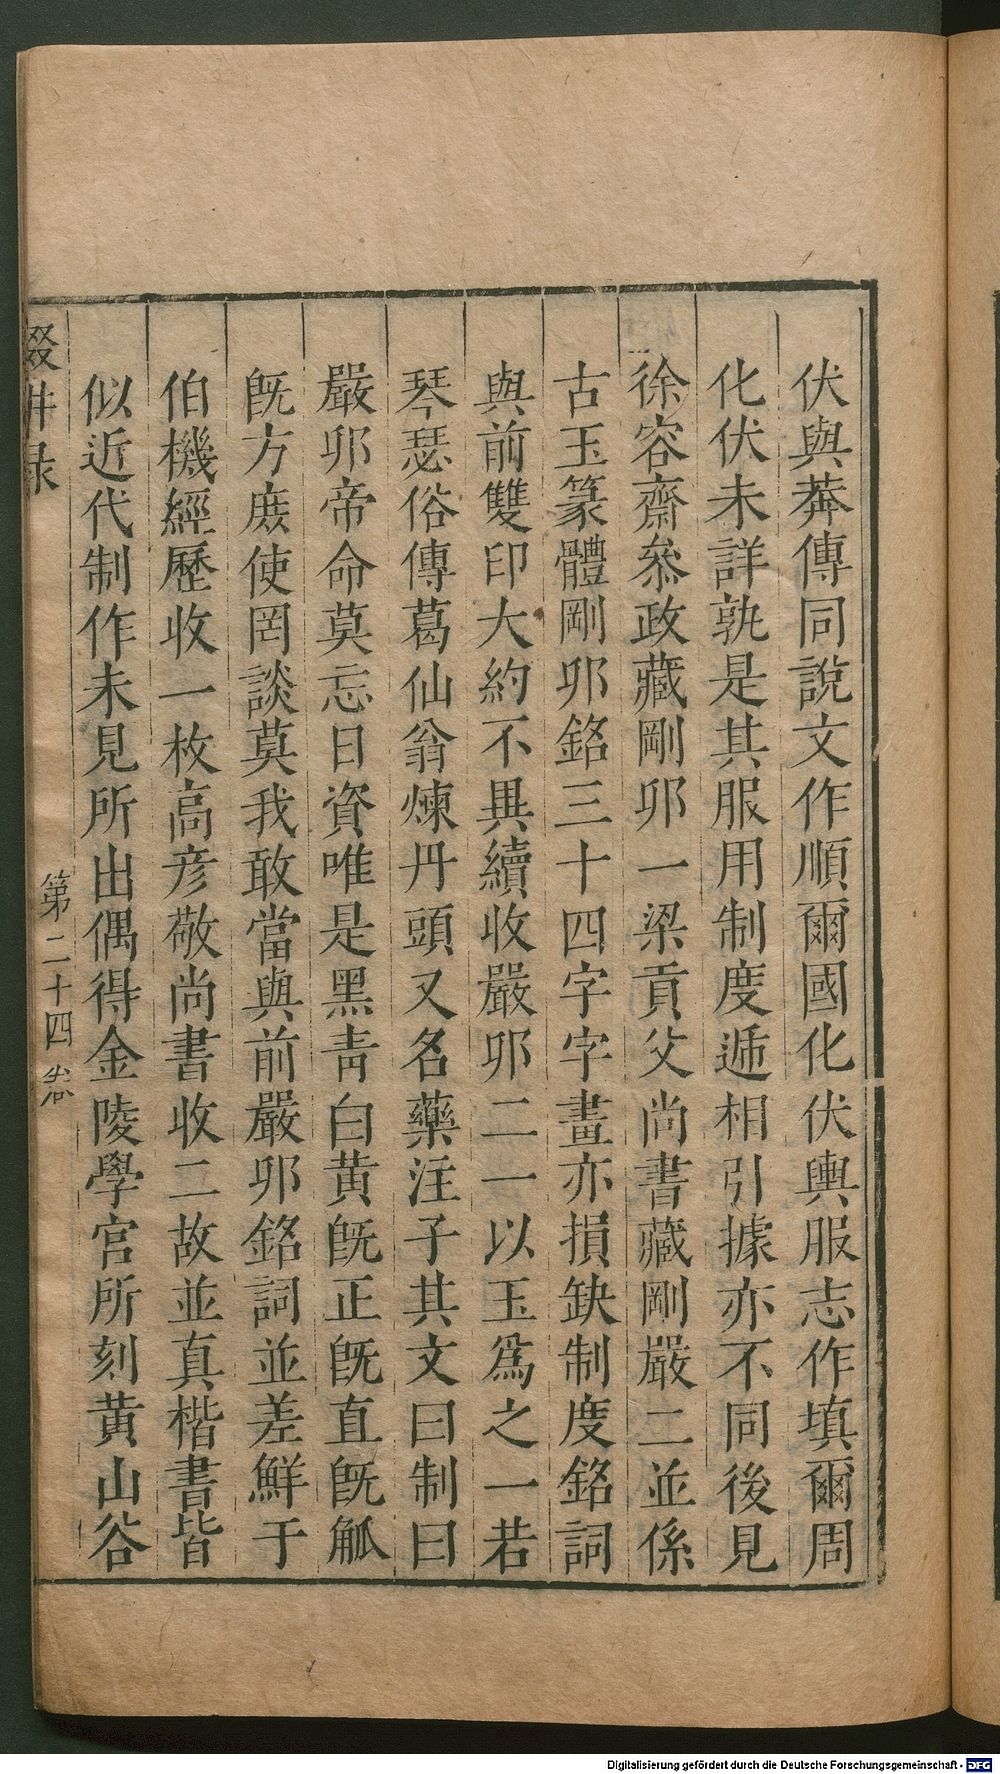 伏與莽傳同說文作順爾國化伏輿服志作填爾周
化伏未詳孰是其服用制度遞相引據亦不同後見
徐容齋叅政藏剛卯一梁貢父尚書藏剛嚴二並係
古玉篆體剛卯銘三十四字字畫亦損缺制度銘詞
與前雙印大約不異續收嚴卯二一以玉爲之一若
琴瑟俗傳葛仙翁煉丹頭又名藥注子其文曰制曰
嚴卯帝命莫忘日資唯是黑青白黄旣正旣直旣觚
旣方庻使罔談莫我敢當與前嚴卯銘詞並差鮮于
伯機經歷收一枚高彦敬尚書收二故並真楷書皆
似近代制作未見所出偶得金陵學宫所刻黄山谷
輟畊录
第二十四卷
Digitalisierung gefördert durch die Deutsche Forschungsgemeinschaft - DFG